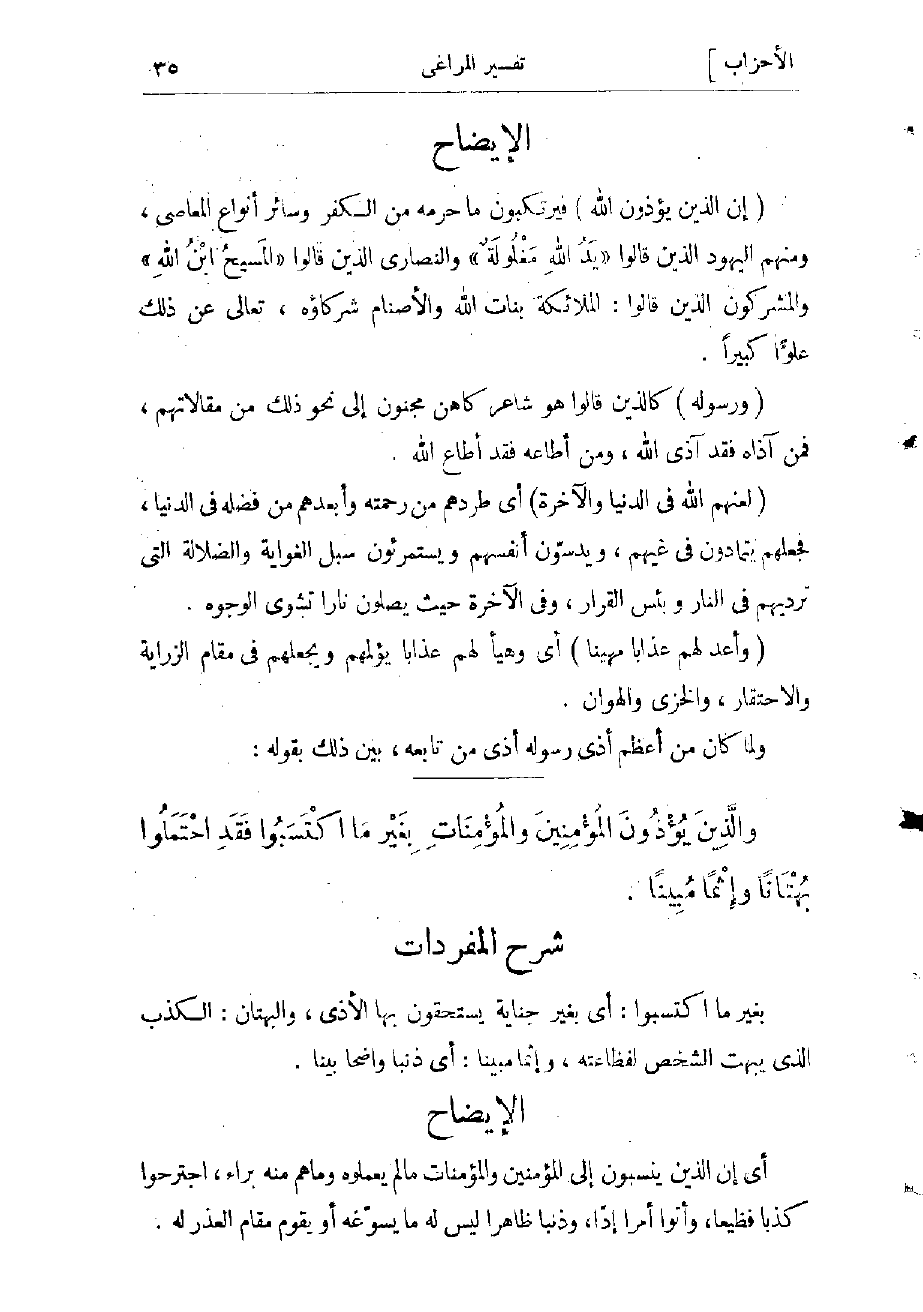 الأحزاب ] تفسير المراغى ٣٥
الإيضاح
( إن الذين يؤذون الله ) فيرتكبون ما حرمه من الكفر وسائر أنواع المعاصى ،
ومنهم اليهود الذين قالوا «يَدُ اللهِ مَغْلُولَةٌ» والنصارى الذين قالوا «المَسِيحُ ابْنُ اللهِ»
والمشركون الذين قالوا : الملائكة بنات الله والأصنام شركاؤه ، تعالى عن ذلك
علوًّا كبيراً .
( ورسوله ) كالذين قالوا هو شاعر كاهن مجنون إلى نحو ذلك من مقالاتهم ،
فمن آذاه فقد آذى الله ، ومن أطاعه فقد أطاع الله .
( لعنهم الله فى الدنيا والآخرة) أى طردهم من رحمته وأبعدهم من فضله فى الدنيا ،
فجعلهم يتمادون فى غيهم ، ويدسّون أنفسهم ويستمرئون سبل الغواية والضلالة التى
ترديهم فى النار وبئس القرار ، وفى الآخرة حيث يصلون نارا تشوى الوجوه .
( وأعد لهم عذابا مهينا ) أى وهيأ لهم عذابا يؤلمهم ويجعلهم فى مقام الزراية
والاحتقار ، والخزى والهوان .
ولما كان من أعظم أذى رسوله أذى من تابعه ، بين ذلك بقوله :
والَّذِينَ يُؤْذُونَ المُؤْمِنِينَ والمُؤْمِنَاتِ بِغَيْرِ مَا اكْتَسَبُوا فَقَدِ احْتَمَلُوا
بُهْتَانًا وإِثْمًا مُبِينًا .
شرح المفردات
بغير ما اكتسبوا : أى بغير جناية يستحقون بها الأذى ، والبهتان : الكذب
الذى يبهت الشخص لفظاعته ، وإثما مبينا : أى ذنبا واضحا بينا .
الإيضاح
أى إن الذين ينسبون إلى المؤمنين والمؤمنات مالم يعملوه وماهم منه براء ، اجترحوا
كذبا فظيعا، وأتوا أمرا إدّا، وذنبا ظاهرا ليس له ما يسوّغه أو يقوم مقام العذر له .